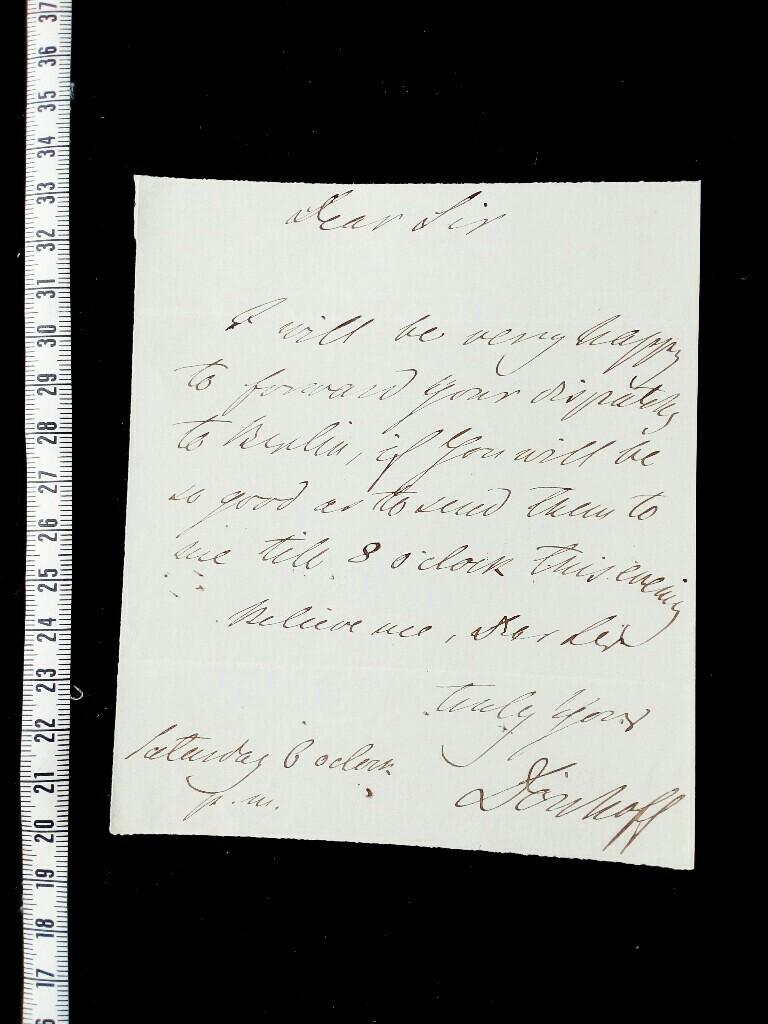 Dear Sir
I will be very happy
to forward your dispatchs
to Berlin, if You will be
so good as to send them to
me till 8 o'clock this evening
Believe me, Dear Sir
truly Yours
Dönhoff
Saturday 6 oclock
p.m.
37
36
35
34
33
32
31
30
29
28
27
26
25
24
23
22
21
20
19
18
17